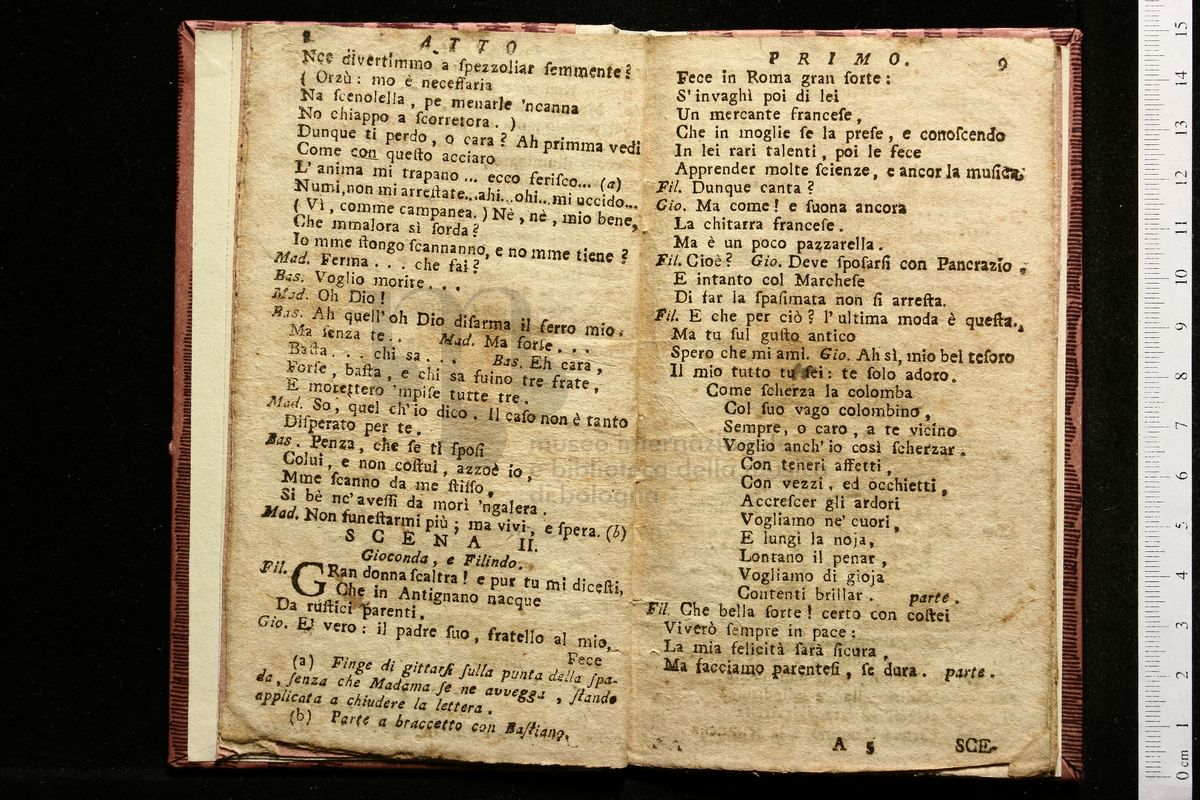 8 ATTO
Nce divertimmo a ſpezzoliar femmente?
( Orzù : mo è neceſſaria
Na ſcenolella, pe menarle 'ncanna
No chiappo a ſcorretora. )
Dunque ti perdo, o cara? Ah primma vedi
Come con queſto acciaro
L'anima mi trapano... ecco feriſco... (a)
Numi, non mi arreſtate...ahi...ohi...mi uccido...
( Vì, comme campanea. ) Nè, nè, mio bene,
Che mmalora sì ſorda?
Io mme ſtongo ſcannanno, e no mme tiene?
Mad. Ferma... che fai?
Bas. Voglio morire...
Mad. Oh Dio!
Bas. Ah quell'oh Dio diſarma il ferro mio.
Ma ſenza te.. Mad. Ma forſe...
Baſta... chi sa... Bas. Eh cara,
Forſe, baſta, e chi sa fuino tre frate,
E morettero 'mpiſe tutte tre.
Mad. So, quel ch'io dico. Il caſo non è tanto
Diſperato per te.
Bas. Penza, che ſe ti ſpoſi
Colui, e non coſtui, azzoè io,
Mme ſcanno da me ſtiſſo,
Si bè nc'aveſſi da morì 'ngalera.
Mad. Non funeſtarmi più; ma vivi, e ſpera. (b)
SCENA II.
Gioconda, e Filindo.
Fil. GRan donna ſcaltra! e pur tu mi diceſti,
Che in Antignano nacque
Da ruſtici parenti.
Gio. E' vero: il padre ſuo, fratello al mio,
Fece
(a) Finge di gittarſi ſulla punta della ſpa-
da, ſenza che Madama ſe ne avvegga, ſtando
applicata a chiudere la lettera.
(b) Parte a braccetto con Baſtiano.
PRIMO. 9
Fece in Roma gran ſorte:
S'invaghì poi di lei
Un mercante franceſe,
Che in moglie ſe la preſe, e conoſcendo
In lei rari talenti, poi le fece
Apprender molte ſcienze, e ancor la muſica.
Fil. Dunque canta?
Gio. Ma come! e ſuona ancora
La chitarra franceſe.
Ma è un poco pazzarella.
Fil. Cioè? Gio. Deve ſpoſarſi con Pancrazio,
E intanto col Marcheſe
Di far la ſpaſimata non ſi arreſta.
Fil. E che per ciò? l'ultima moda è queſta.
Ma tu ſul guſto antico
Spero che mi ami. Gio. Ah sì, mio bel teſoro
Il mio tutto tu ſei: te ſolo adoro.
Come ſcherza la colomba
Col ſuo vago colombino,
Sempre, o caro, a te vicino
Voglio anch'io così ſcherzar.
Con teneri affetti,
Con vezzi, ed occhietti,
Accreſcer gli ardori
Vogliamo ne' cuori,
E lungi la noja,
Lontano il penar,
Vogliamo di gioja
Contenti brillar. parte.
Fil. Che bella ſorte! certo con coſtei
Viverò ſempre in pace:
La mia felicità ſarà ſicura,
Ma facciamo parenteſi, ſe dura. parte.
A 5 SCE-
museo internazionale
e biblioteca della musica
di bologna
15
14
13
12
11
10
9
8
7
6
5
4
3
2
1
0 cm